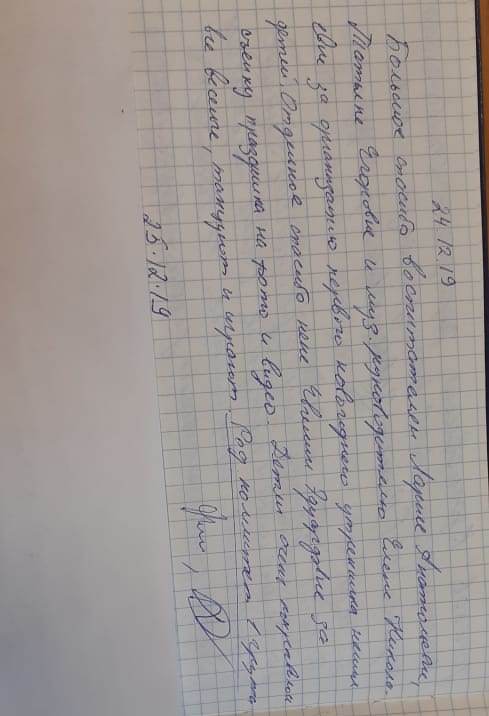 24.12.19
Большое спасибо воспитателям Ларисе Анатольевне,
Татьяне Егоровне и муз. руководителю Елене Николa-
евне за организацию первого новогоднего утренника наших
детей. Отдельное спасибо няне Евгении Эдуардовне за
съемку праздника на фото и видео. Детям очень понравилось
все веселые, танцуют и играют. Род комитет 1 группа
25.12.19